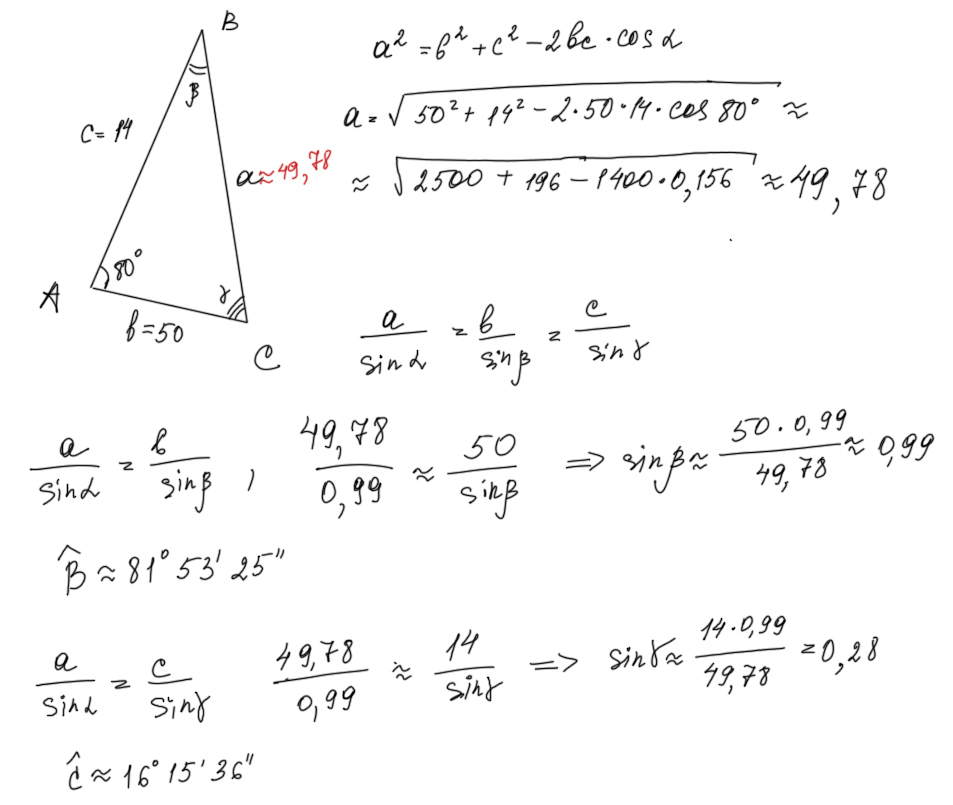 B
β
c = 14
a ≈ 49,78
80°
A
γ
b = 50
C
a² = b² + c² − 2bc · cos α
a = √(50² + 14² − 2·50·14·cos 80°) ≈
≈ √(2500 + 196 − 1400·0,156) ≈ 49,78
a/sin α = b/sin β = c/sin γ
a/sin α = b/sin β , 49,78/0,99 ≈ 50/sin β => sin β ≈ 50·0,99/49,78 ≈ 0,99
B̂ ≈ 81° 53' 25"
a/sin α = c/sin γ 49,78/0,99 ≈ 14/sin γ => sin γ ≈ 14·0,99/49,78 = 0,28
Ĉ ≈ 16° 15' 36"